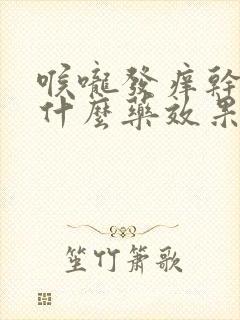 喉嚨發癢幹
什麼藥效果
笙竹簫歌